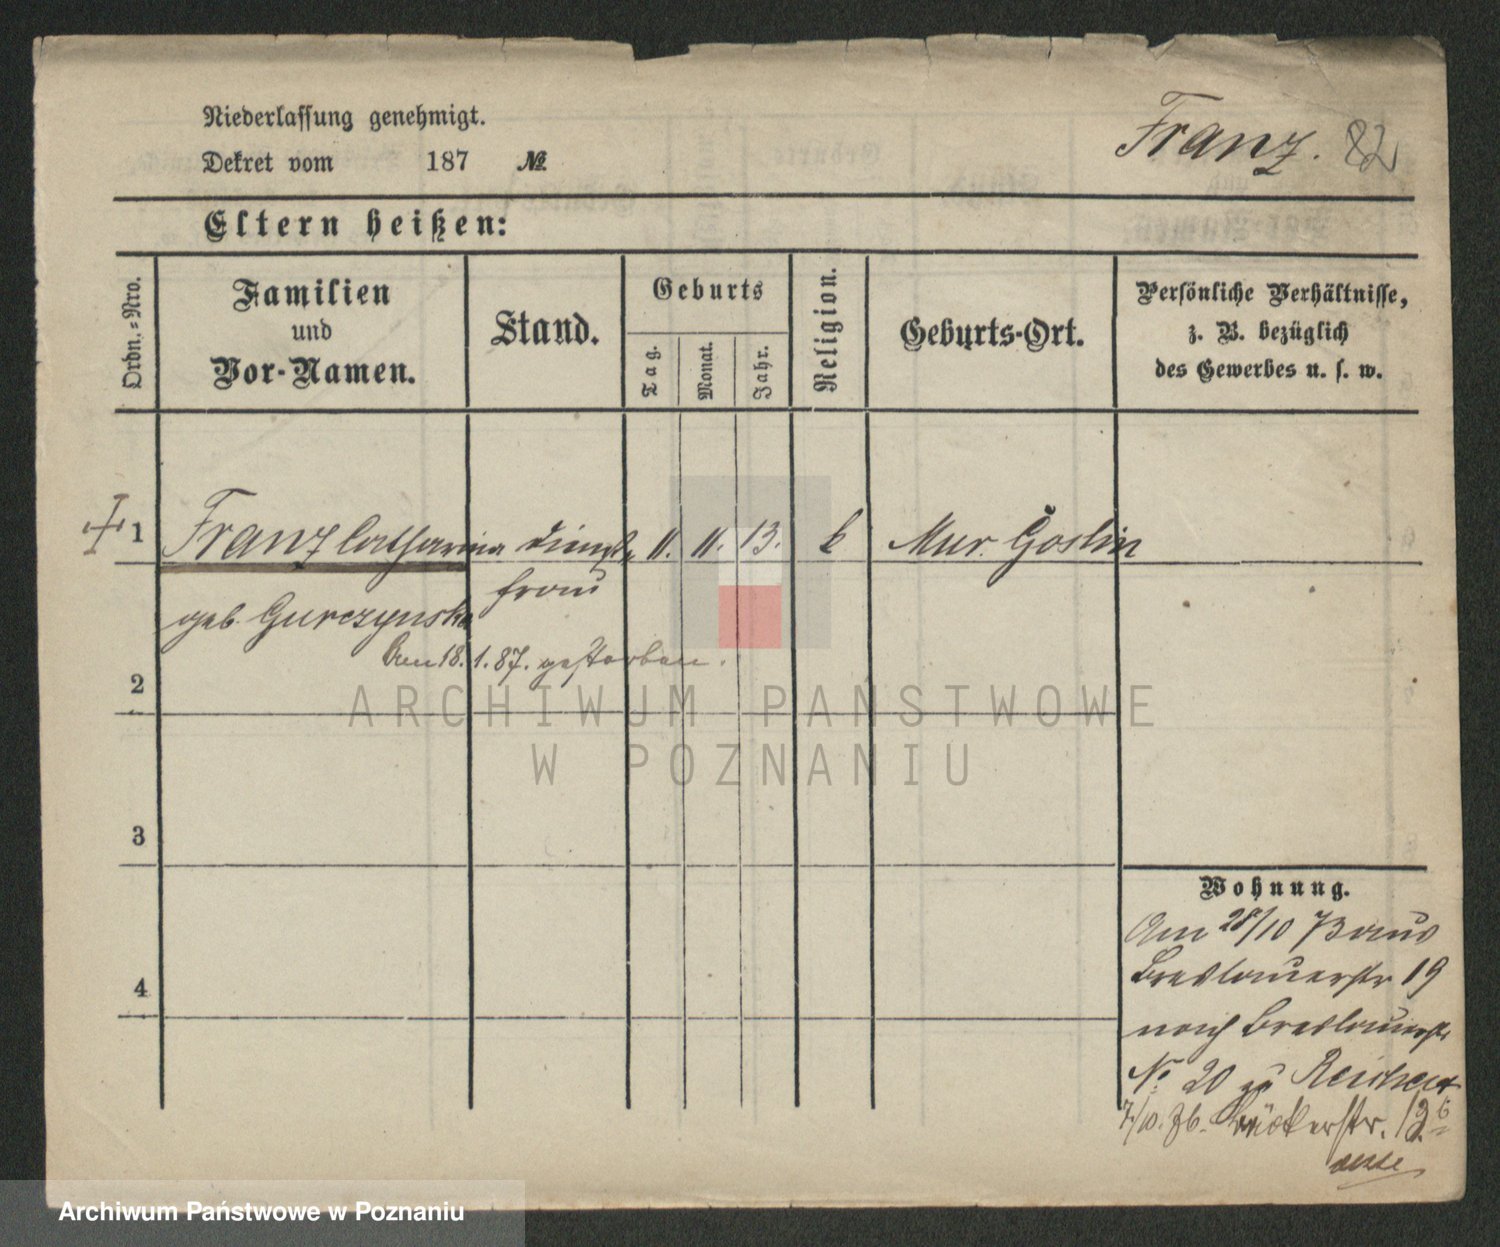 Niederlassung genehmigt.
Dekret vom 187 №
Franz. 82
Eltern heißen:
Ordn.-Nro.
Familien
und
Vor-Namen.
Stand.
Geburts
Tag.
Monat.
Jahr.
Religion.
Geburts-Ort.
Persönliche Verhältnisse,
z. B. bezüglich
des Gewerbes u. s. w.
1 Franz Catharina Dienst 11. 11. 13. k Mur. Goslin
frau
geb. Gurczynska
Den 18. 1. 87. gestorben.
2
3
4
Wohnung.
Am 28/10 73 aus
Breslauerstr 19
nach Breslauerstr
No 20 zu
7/10. 76. Bäckerstr. 13
ARCHIWUM PAŃSTWOWE
W POZNANIU
Archiwum Państwowe w Poznaniu